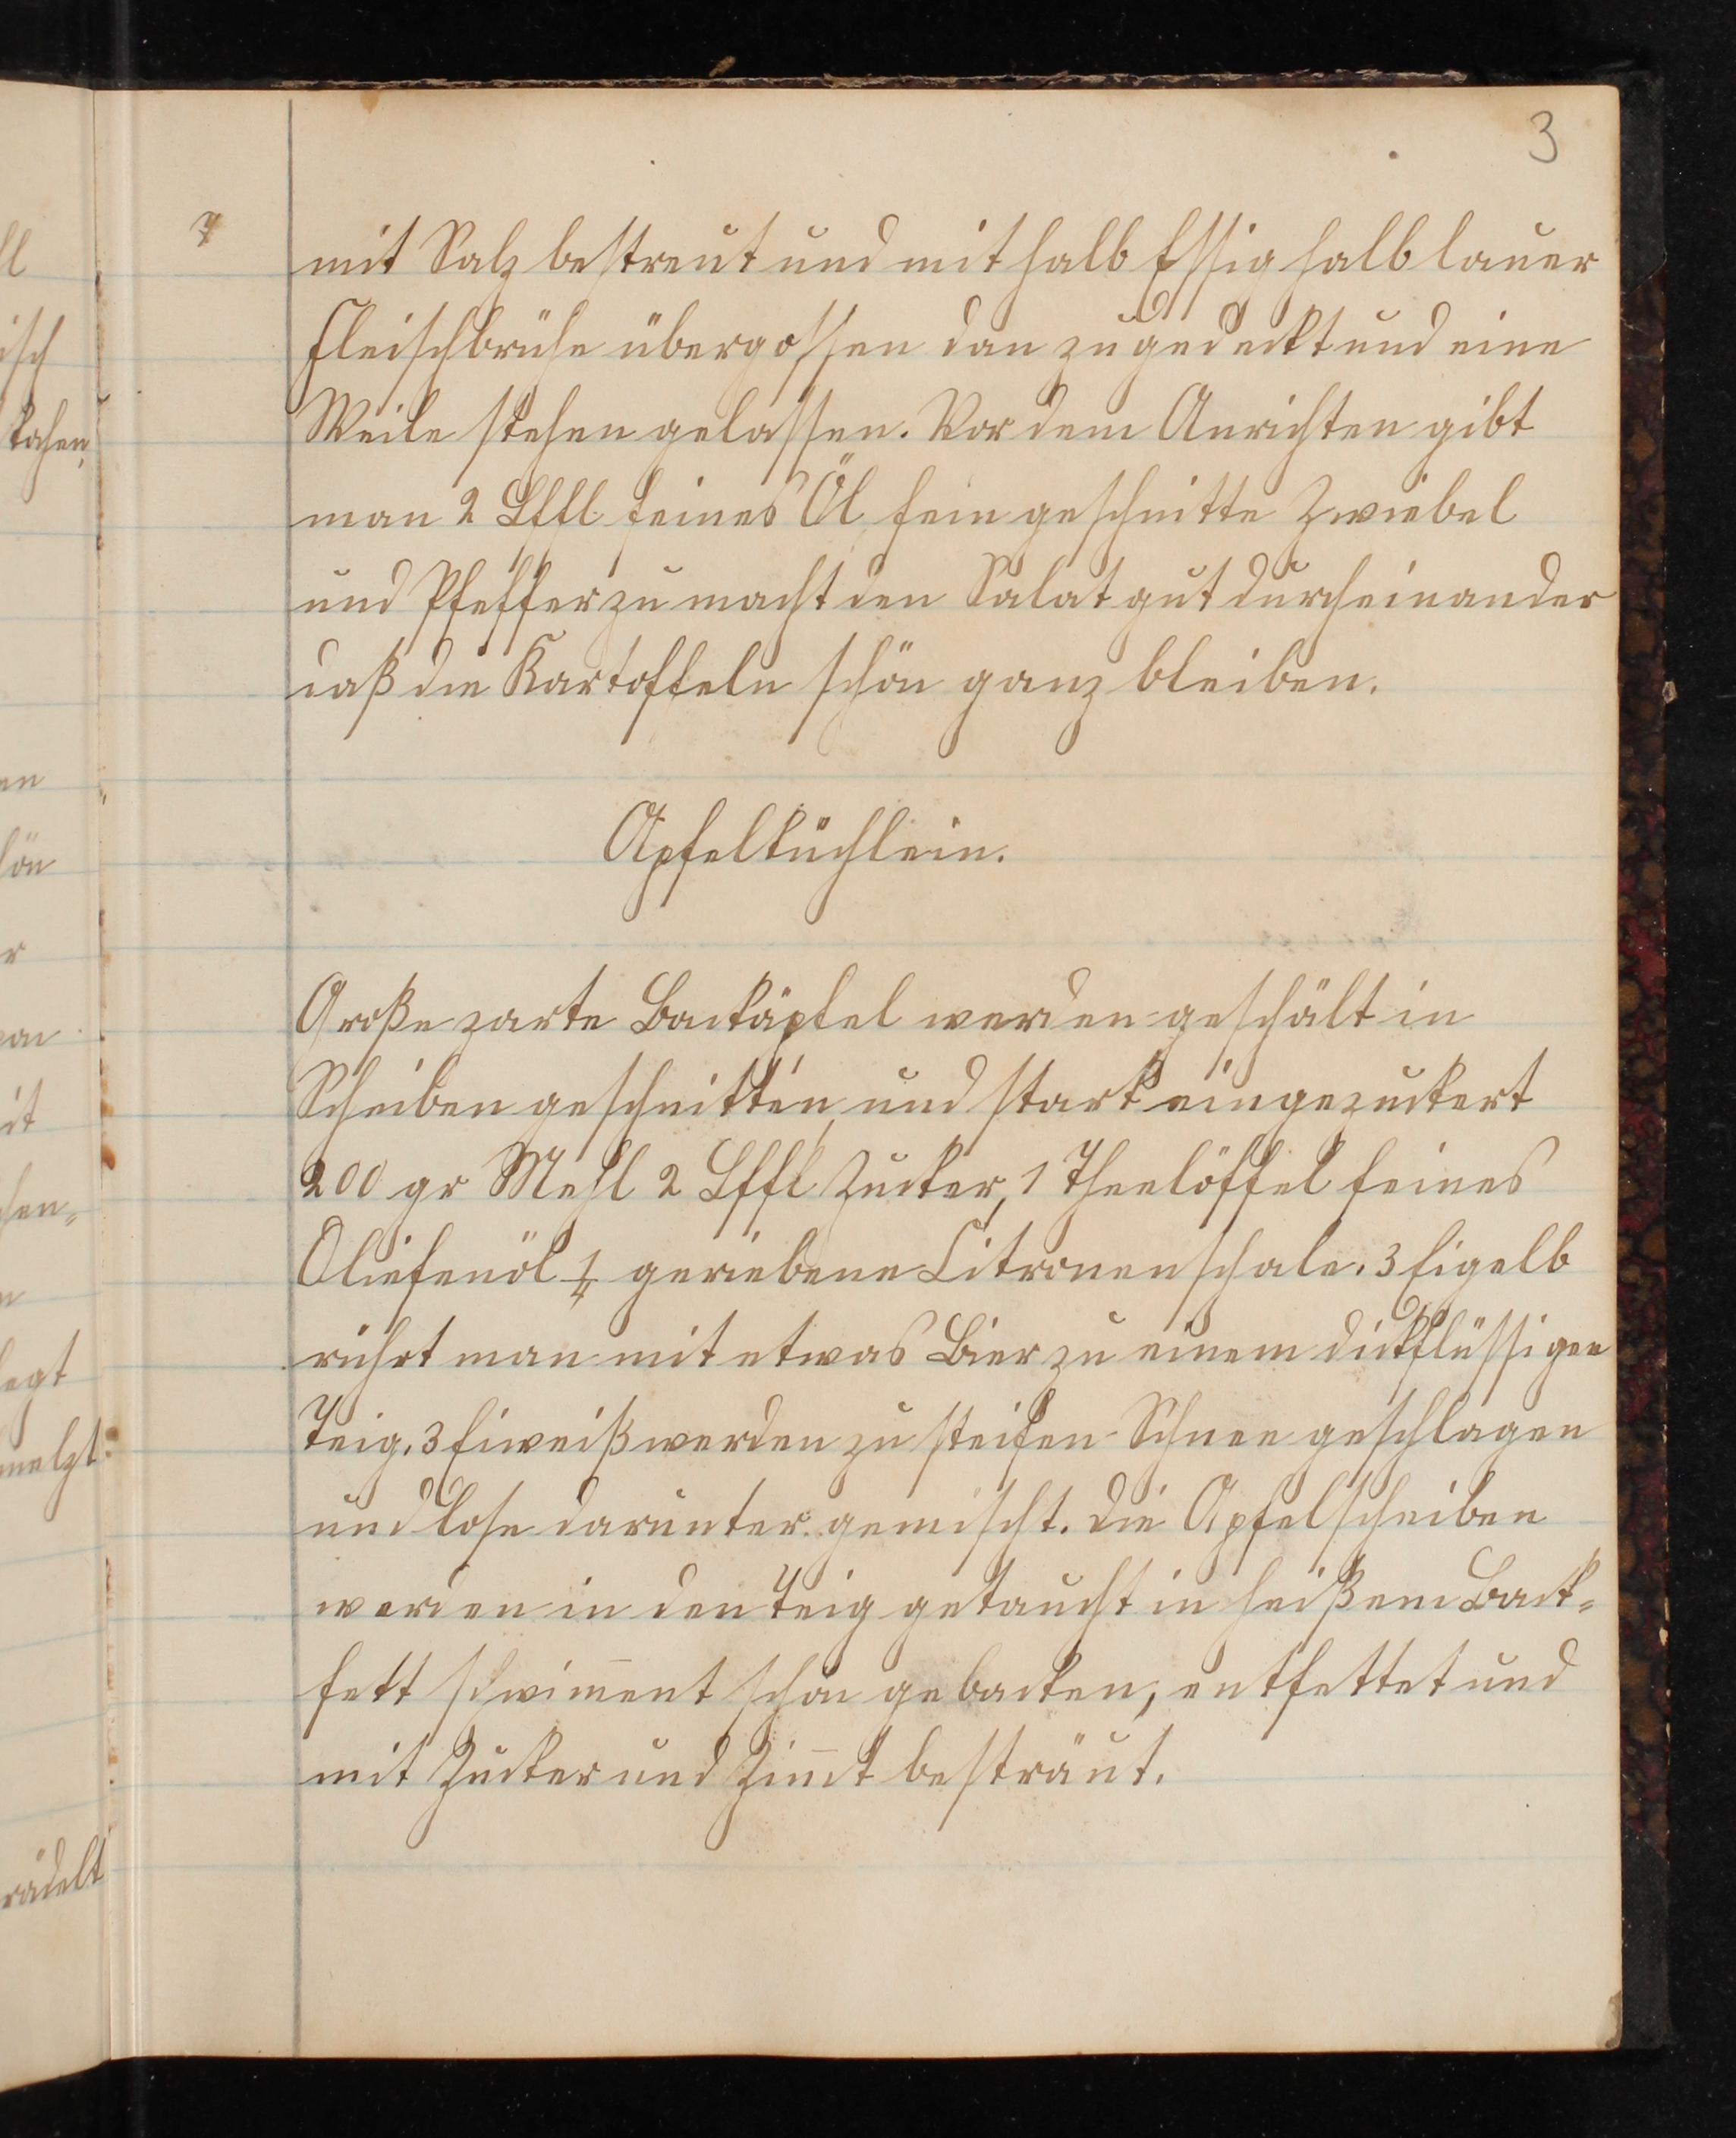 3
mit Salz bestreut und mit halb Essig halb lauer
Fleischbrühe übergossen dan zugedeckt und eine
Weile stehen gelassen. Vor dem Anrichten gibt
man 2 Lffl feines Öl, fein geschnitte Zwiebel
und Pfeffer zu macht den Salat gut durcheinander
daß die Kartoffeln schön ganz bleiben.
Apfelküchlein.
Große zarte Backäpfel werden geschält in
Scheiben geschnitten, und stark eingezuckert
200 gr Mehl 2 Lffl Zucker, 1 Theelöffel feines
Oliefenöl 1/4 geriebene Citronenschale. 3 Eigelb
rührt man mit etwas Bier zu einem dickflüssigen
Teig. 3 Eiweiß werden zu steifen Schnee geschlagen
und lose darunter gemischt. Die Apfelscheiben
werden in den Teig getaucht in heißem Back-
fett schwim̄ent schön gebacken, entfettet und
mit Zucker und Zim̄t besträut.